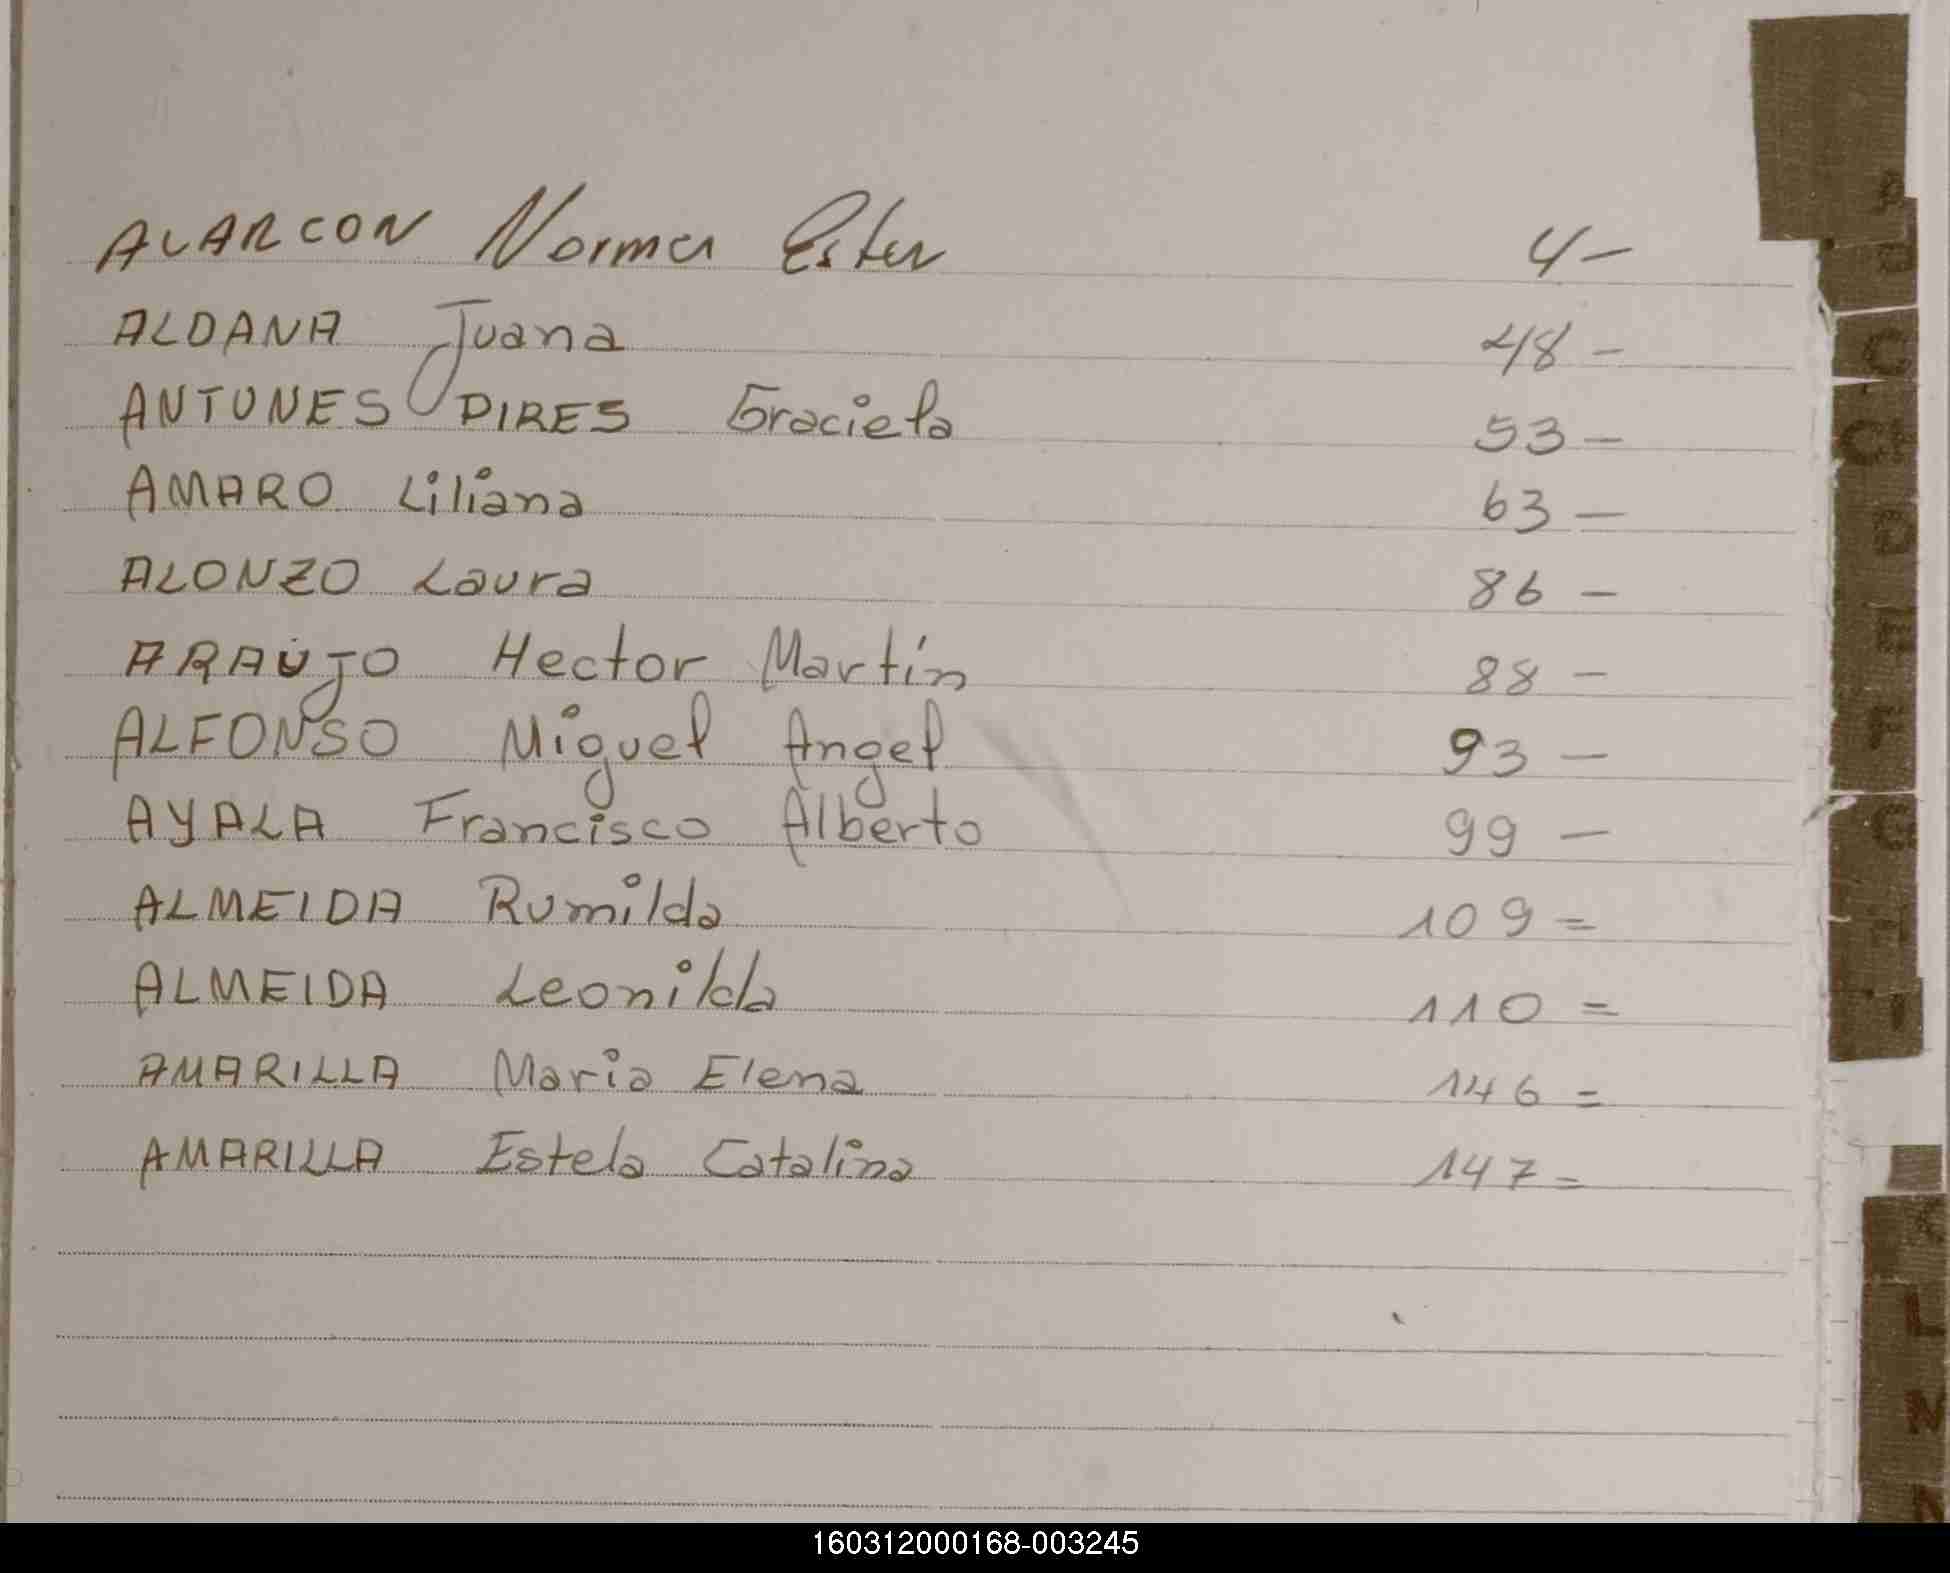 ALARCON Norma Ester 4-
ALDANA Juana 48-
ANTUNES PIRES Graciela 53-
AMARO Liliana 63-
ALONZO Laura 86-
ARAUJO Hector Martín 88-
ALFONSO Miguel Angel 93-
AYALA Francisco Alberto 99-
ALMEIDA Rumilda 109=
ALMEIDA Leonilda 110=
AMARILLA Maria Elena 146=
AMARILLA Estela Catalina 147=
C
CH
D
E
F
G
H
I
L
M
160312000168-003245